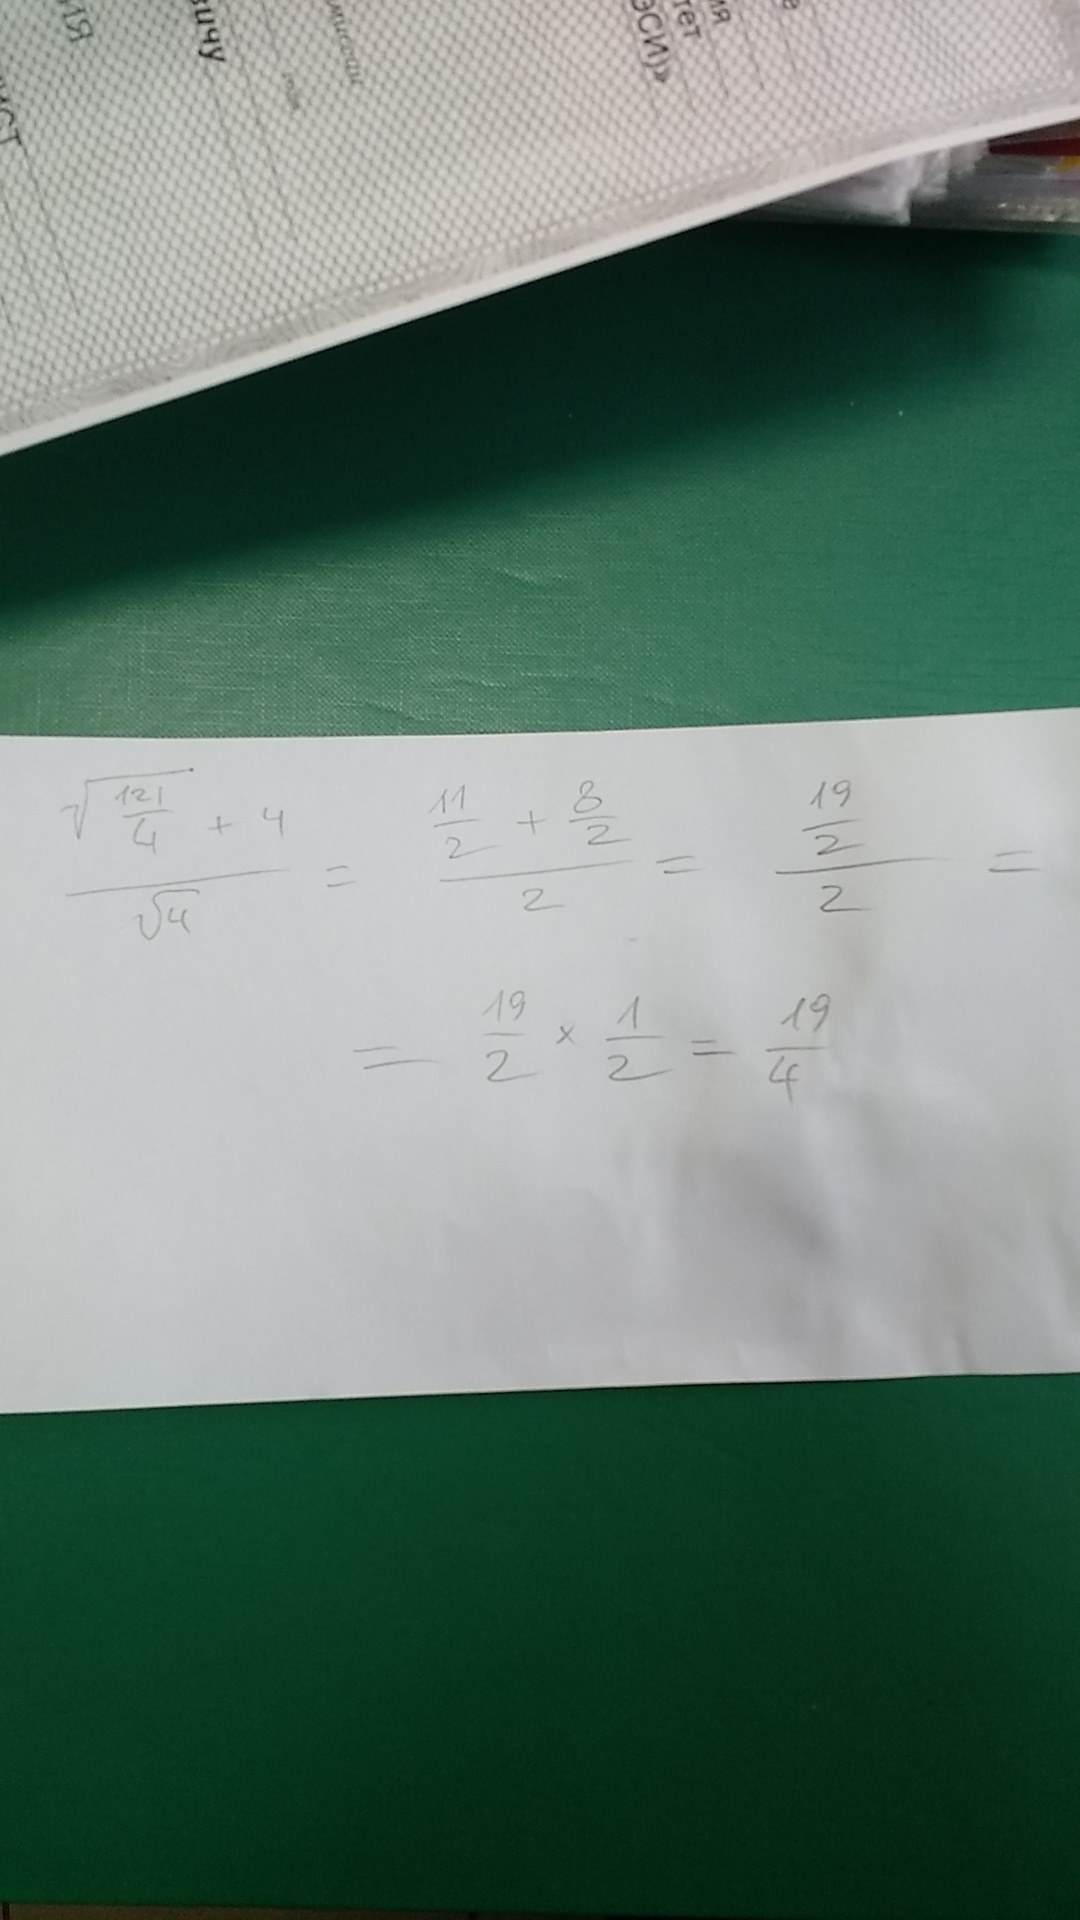 вичу
ЭСИ)»
тет
ия
е
ИЯ
$\frac{\sqrt{\frac{121}{4}} + 4}{\sqrt{4}} = \frac{\frac{11}{2} + \frac{8}{2}}{2} = \frac{\frac{19}{2}}{2} =$
$= \frac{19}{2} \times \frac{1}{2} = \frac{19}{4}$